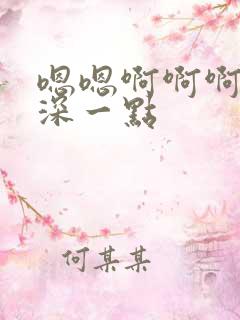 嗯嗯啊啊啊
深一點
何某某